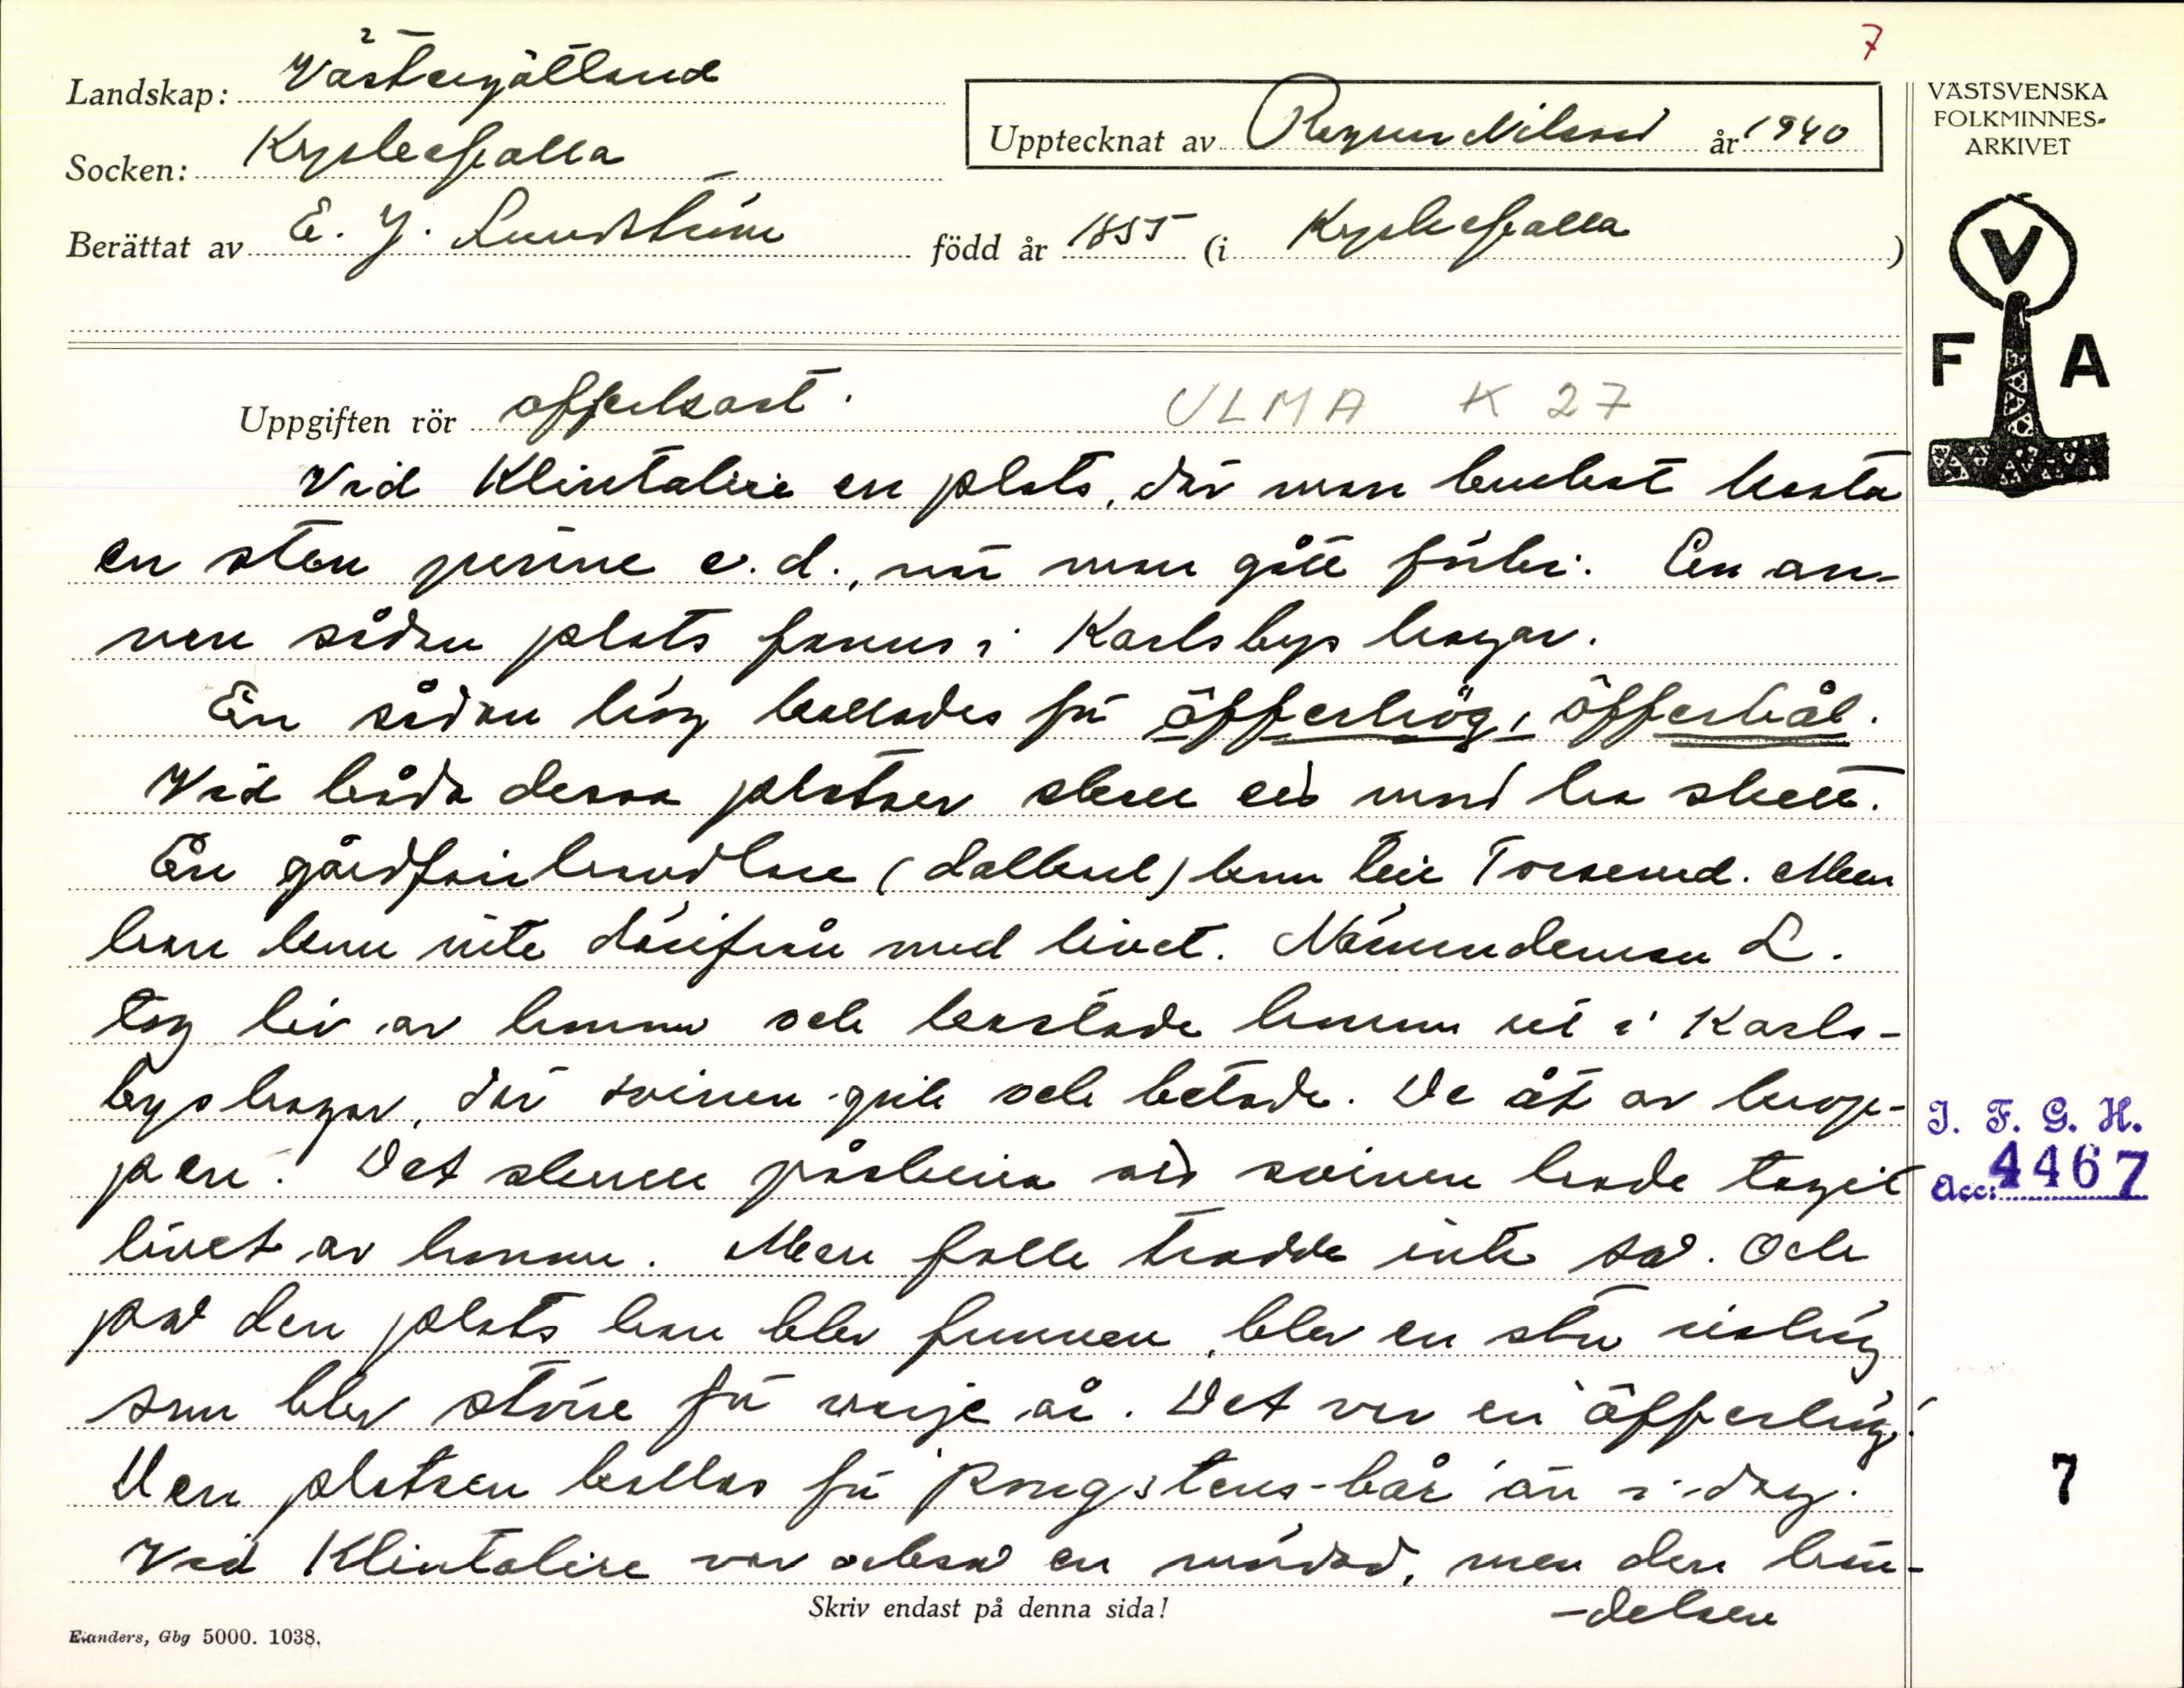 7
Landskap: Västergötland
Socken: Kyrkefalla
Upptecknat av Ragnar Nilsson år 1940
Berättat av E. J. Lundström född år 1855 (i Kyrkefalla)
VÄSTSVENSKA
FOLKMINNES-
ARKIVET
V
F A
Uppgiften rör offerkast.
ULMA K 27
Vid Klintalise en plats, där man brukat kasta
en sten pinne e.d., när man gått förbi. En an-
nan sådan plats fanns i Karlsbys hagar.
En sådan hög kallades för öfferhög, öfferbål.
Vid båda dessa platser skall ett mord ha skett.
En gårdfarihandlare (dalkarl) kom till Torserud. Men
han kom inte därifrån med livet. Nämndeman L.
tog liv av honom och kastade honom ut i Karls-
bys hagar, där svinen gick och betade. De åt av krop-
pen. Det skulle påskina att svinen hade tagit
livet av honom. Men folk trodde inte så. Och
på den plats han blev funnen, blev en stor rishög
som blev större för varje år. Det var en öfferhög.
Den platsen kallas för Pongstens-bår än i-dag.
Vid Klintalise var också en mördad, men den hän-
-delsen
Skriv endast på denna sida!
Elanders, Gbg 5000. 1038.
I. F. G. H.
Acc: 4467
7